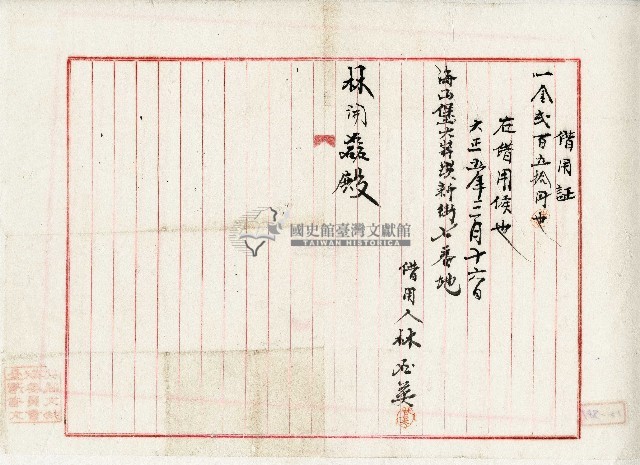 借用証
一金弐百五拾円也
右借用候也
大正五年三月十六日
海山堡大嵙崁新街七番地
借用人 林石英
林開磊殿
國史館臺灣文獻館
TAIWAN HISTORICA